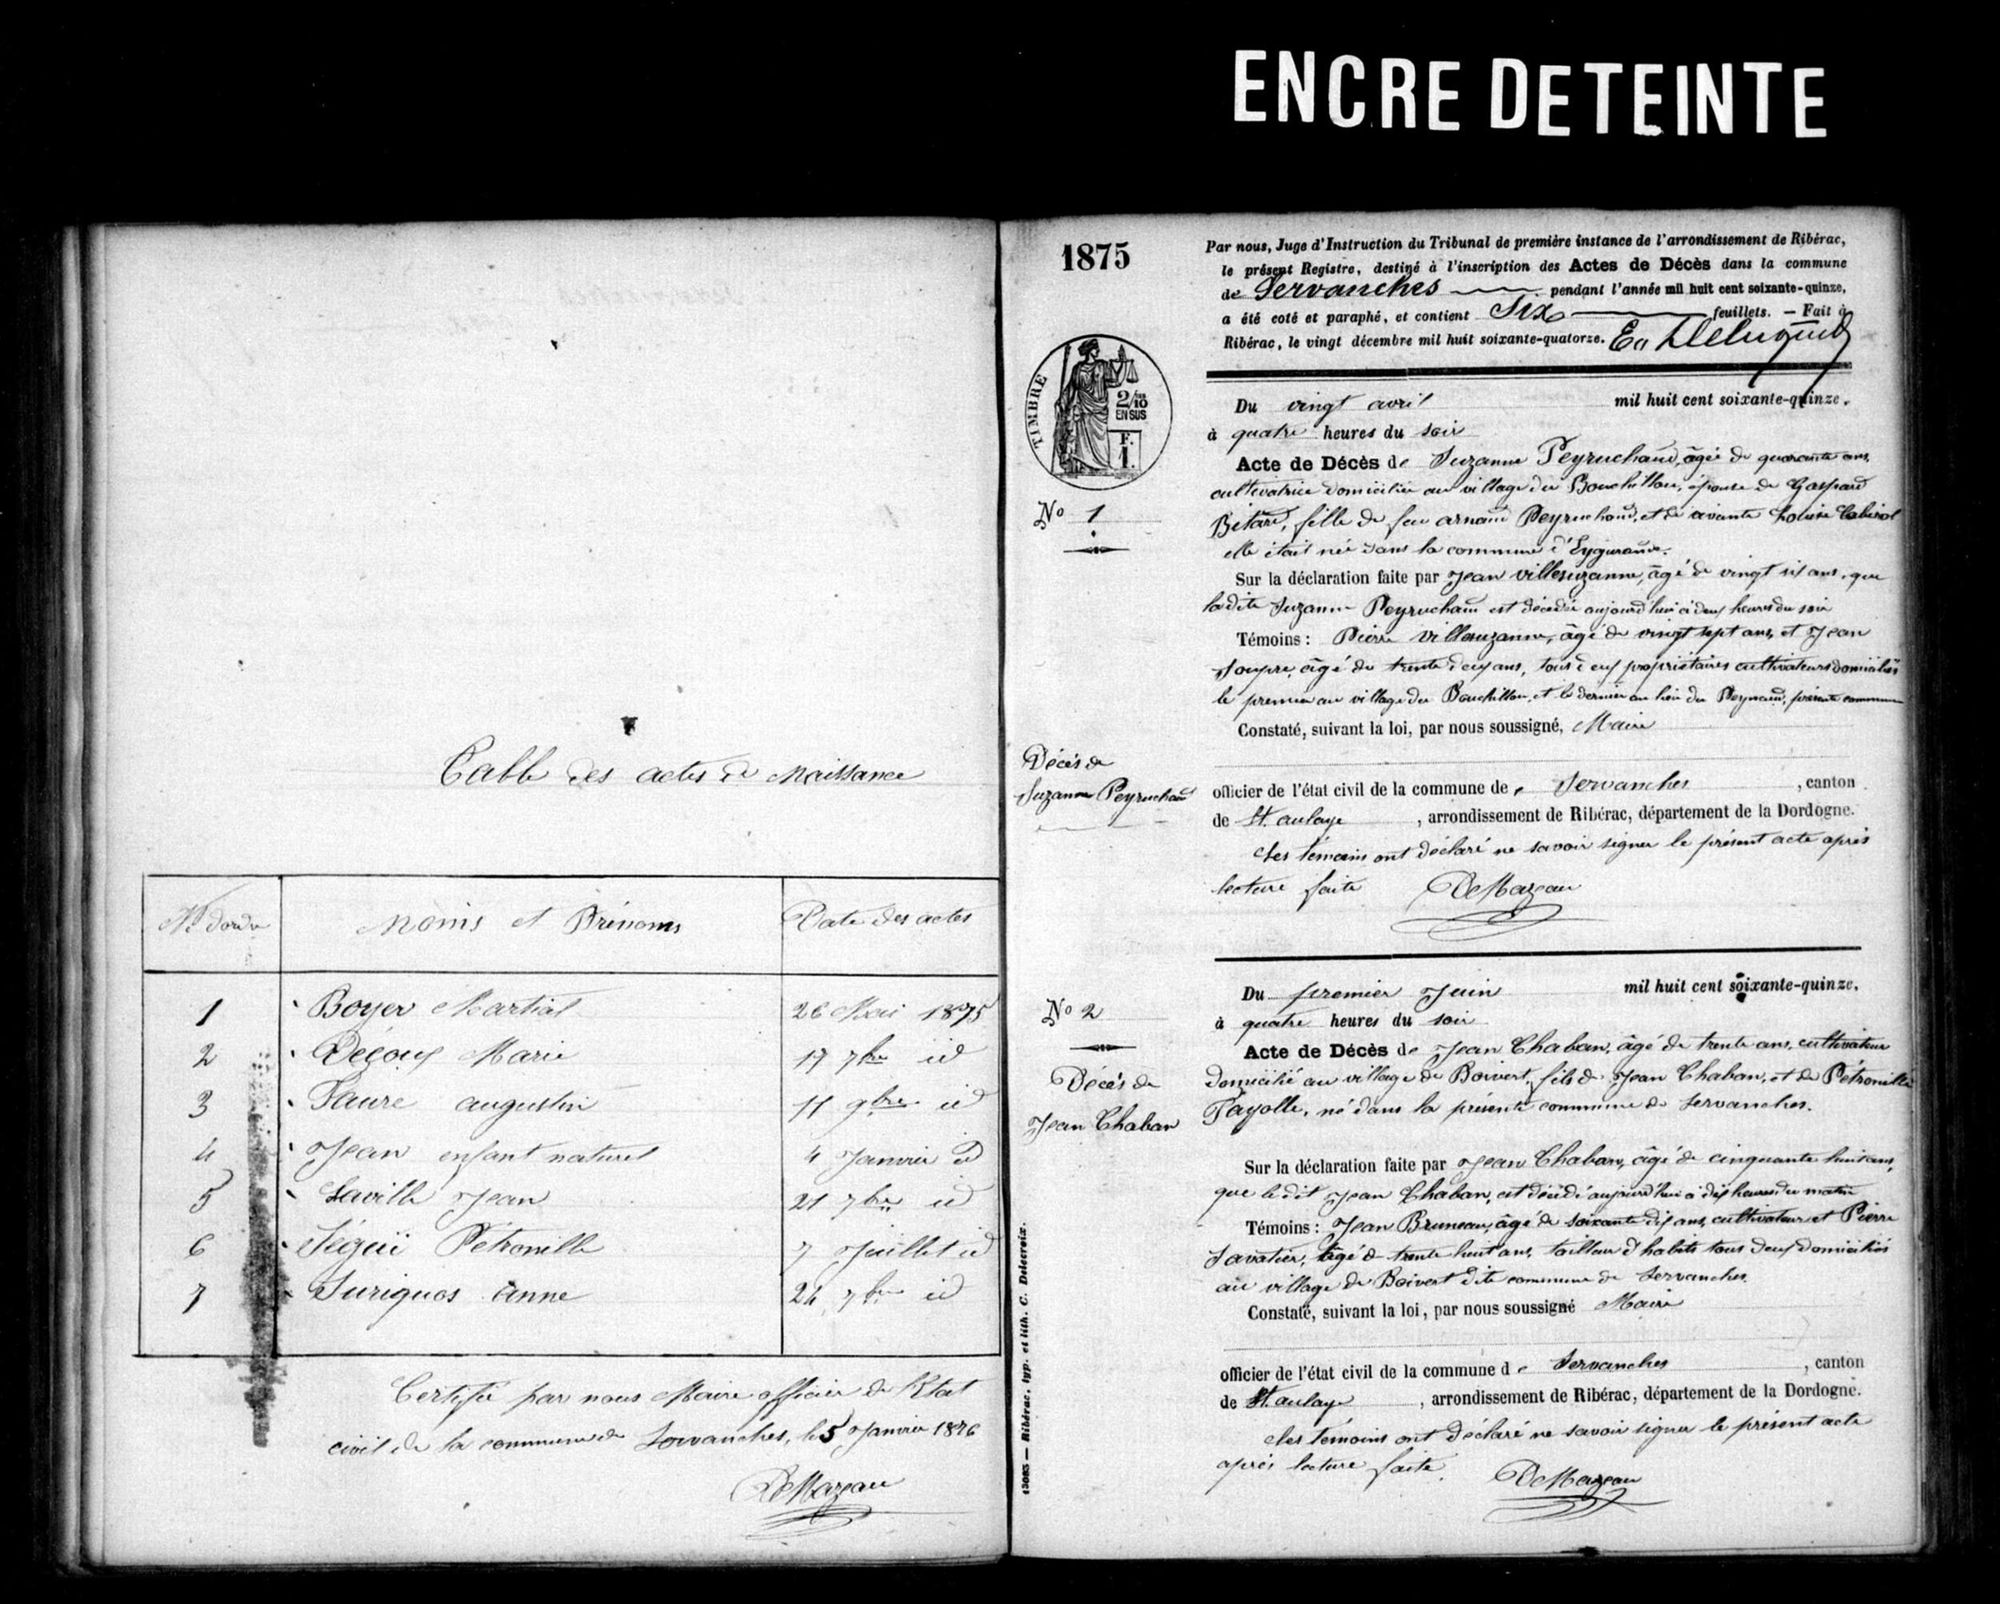 ENCRE DETEINTE
Table des actes de Naissance
N° d'ordre Noms et Prénoms Date des actes
1 Boyer Martial 26 Mai 1875
2 Deçoux Marie 17 7bre id
3 Faure augustin 11 9bre id
4 Jean enfant naturel 4 Janvier id
5 Laville Jean 21 7bre id
6 Ségui Pétronille 7 Juillet id
7 Suriguos anne 24 7bre id
Certifié par nous Maire officier de l'Etat
civil de la commune de Servanches, le 5 Janvier 1876
DeMazeau
1875
Par nous, Juge d'Instruction du Tribunal de première instance de l'arrondissement de Ribérac,
le présent Registre, destiné à l'inscription des Actes de Décès dans la commune
de Servanches pendant l'année mil huit cent soixante-quinze,
a été coté et paraphé, et contient Six feuillets. — Fait à
Ribérac, le vingt décembre mil huit soixante-quatorze.
TIMBRE
2/10
EN SUS
F.
1.
N° 1
Décès de
Suzanne Peyruchaud
Du vingt avril mil huit cent soixante-quinze.
à quatre heures du soir
Acte de Décès de Suzanne Peyruchaud, âgée de quarante ans,
cultivatrice domiciliée au village du Bouchillou, épouse de Gaspard
Bitard, fille de feu arnaud Peyruchaud, et de vivante Louise Cabirol
elle était née dans la commune d'Eygurande.
Sur la déclaration faite par Jean villesuzanne, âgé de vingt six ans, que
la dite Suzanne Peyruchaud est décédée aujourd'hui à deux heures du soir
Témoins : Pierre villesuzanne, âgé de vingt sept ans, et Jean
Soupre, âgé de trente deux ans, tous deux propriétaires cultivateurs domiciliés
le premier au village du Bouchillou, et le dernier au lieu du Peynaud, présente commune
Constaté, suivant la loi, par nous soussigné, Maire
officier de l'état civil de la commune de Servanches , canton
de St. aulaye , arrondissement de Ribérac, département de la Dordogne.
Les témoins ont déclaré ne savoir signer le présent acte après
lecture faite DeMazeau
N° 2
Décès de
Jean Chaban
Du premier Juin mil huit cent soixante-quinze.
à quatre heures du soir
Acte de Décès de Jean Chaban, âgé de trente ans, cultivateur
domicilié au village de Boivert, fils de Jean Chaban, et de Pétronille
Fayolle, né dans la présente commune de Servanches.
Sur la déclaration faite par Jean Chaban, âgé de cinquante huit ans,
que le dit Jean Chaban, est décédé aujourd'hui à dix heures du matin
Témoins : Jean Bruneau, âgé de soixante dix ans, cultivateur et Pierre
Savatier, âgé de trente huit ans, tailleur d'habits tous deux domiciliés
au village de Boivert dite commune de Servanches.
Constaté, suivant la loi, par nous soussigné Maire
officier de l'état civil de la commune de Servanches , canton
de St. aulaye , arrondissement de Ribérac, département de la Dordogne.
Les témoins ont déclaré ne savoir signer le présent acte
après lecture faite. DeMazeau
13083 — Ribérac, typ. et lith. C. Delecroix.